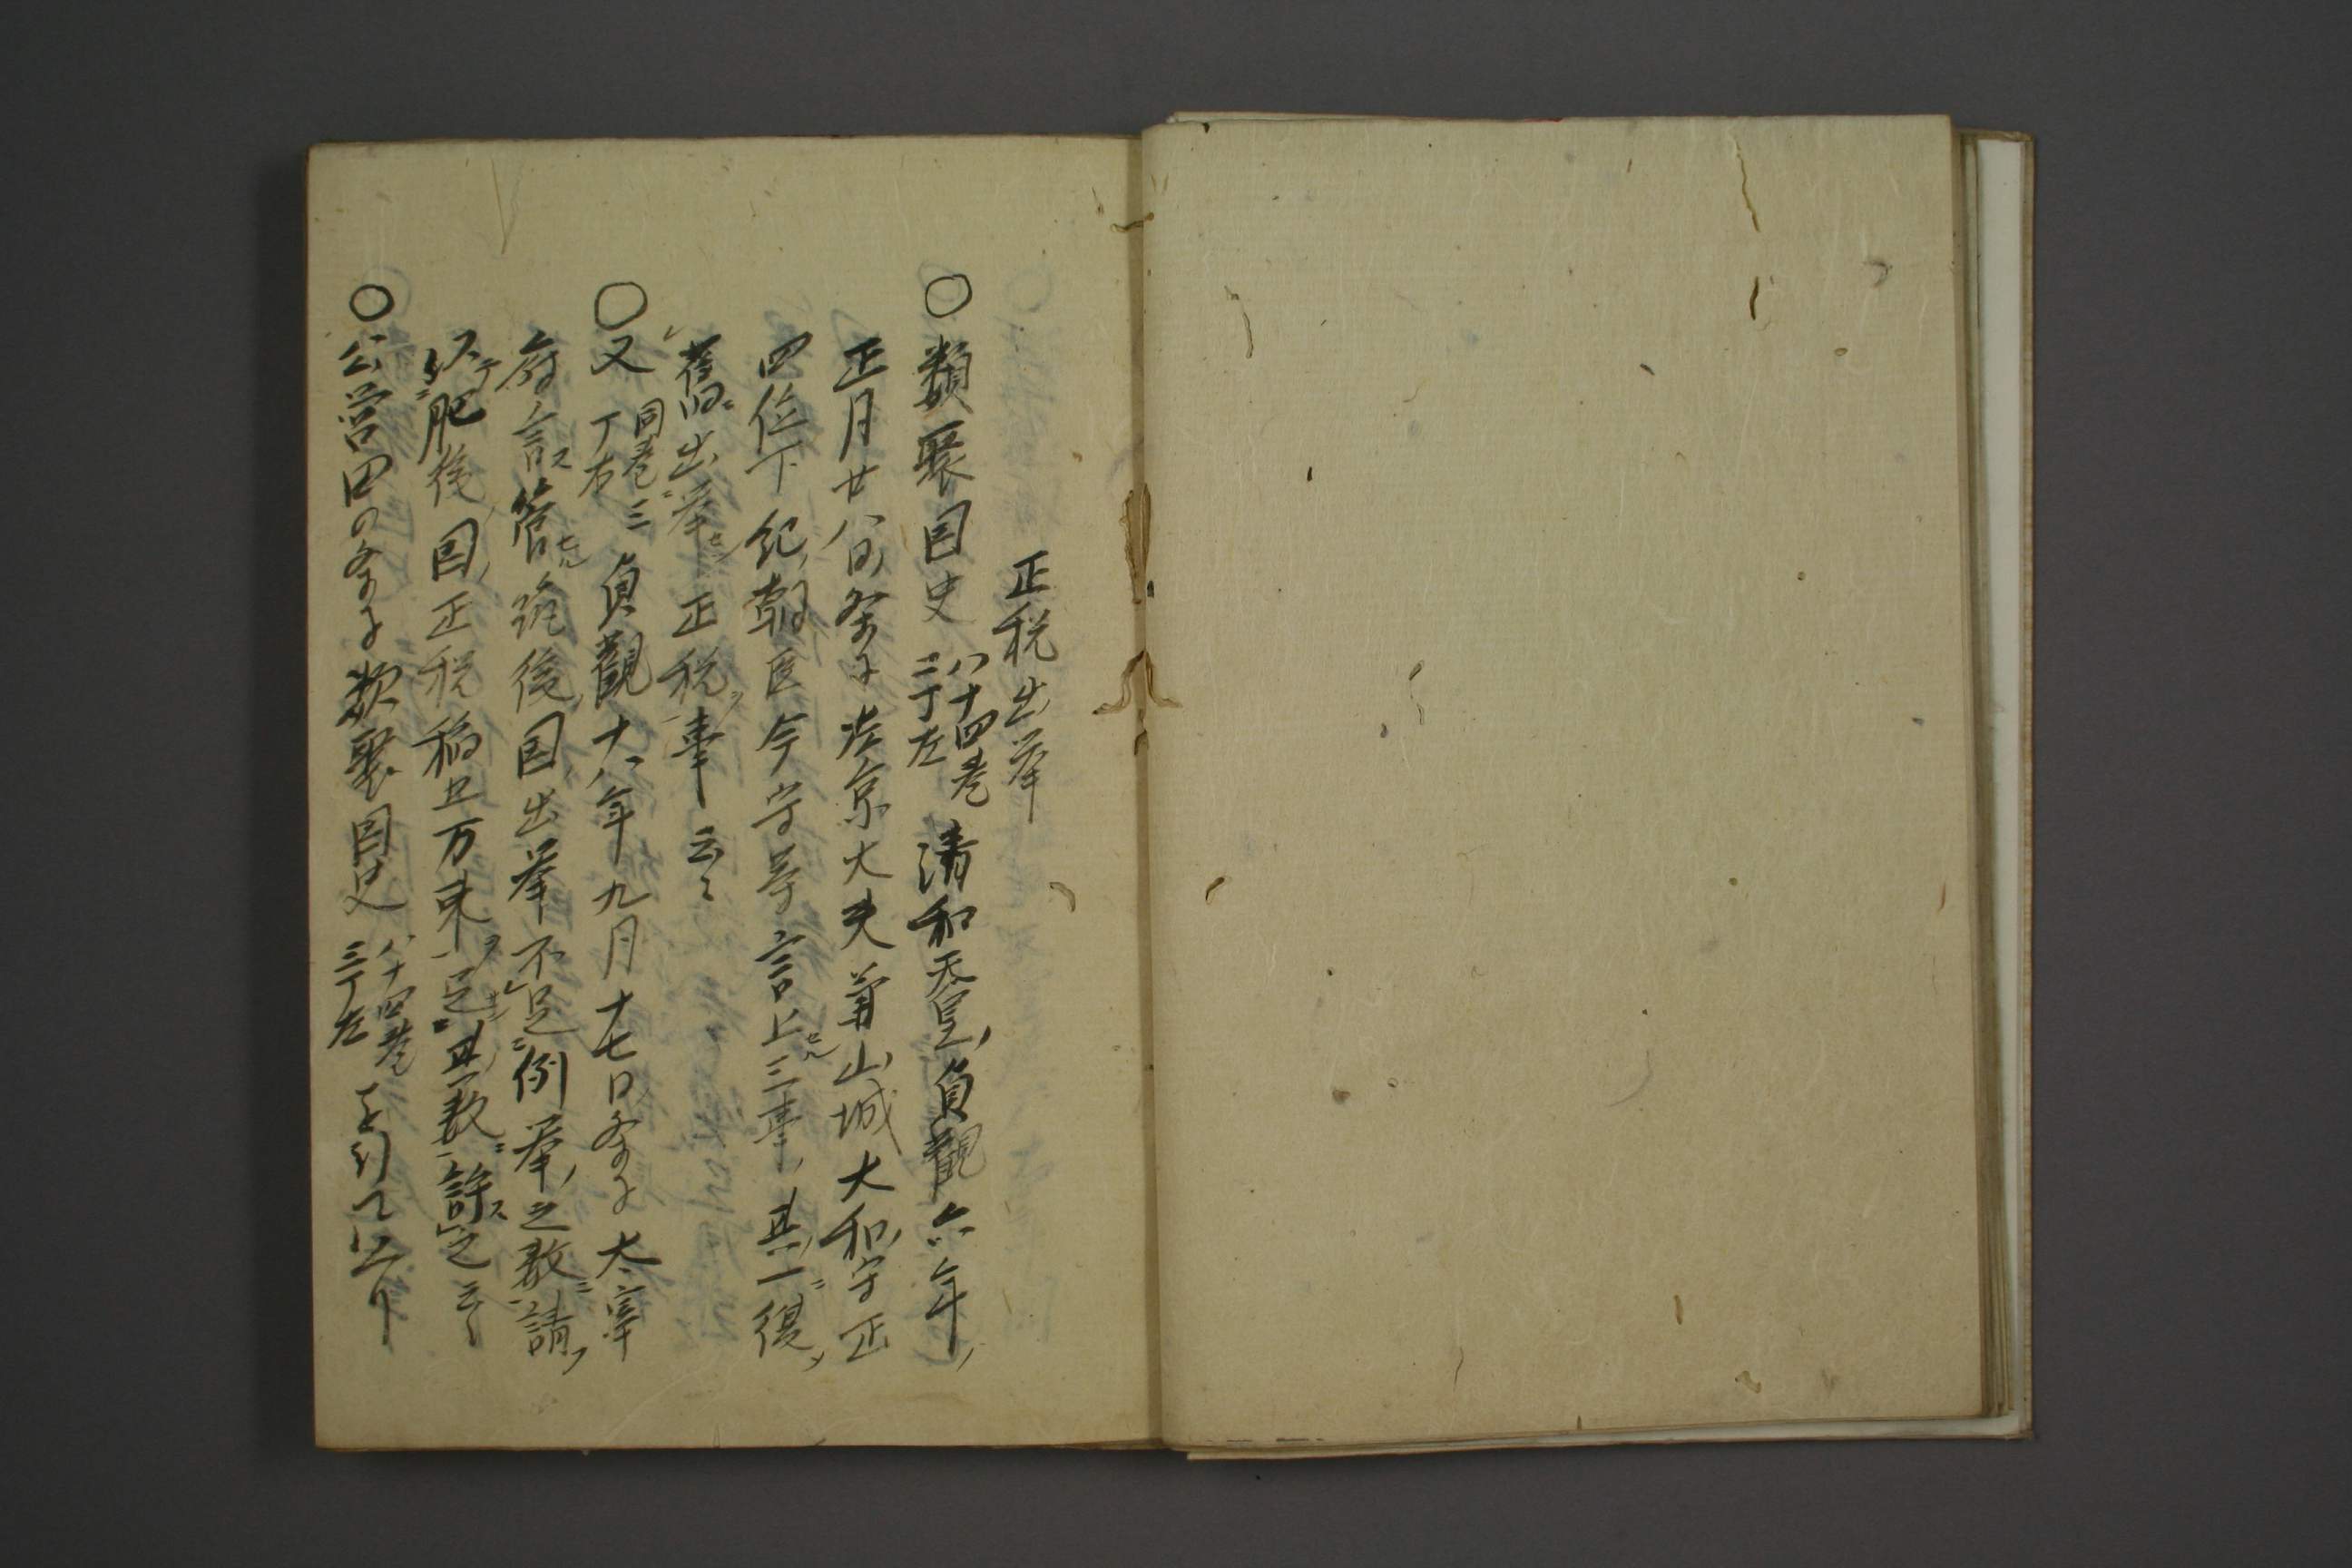 正税出挙
○類聚国史八十四巻二丁左清和天皇貞觀六年
正月廿八日条ニ左京大夫兼山城大和守正
四位下紀朝臣今守等言上三事其一復
舊出挙正税事云々
○又同巻三丁右貞觀十八年九月十七日条ニ太宰
府言管筑後国出挙不足例挙之数請
以肥後国正税稲五万束足其数許之云々
○公営田の条ニ類聚国史八十四巻三丁左を引て云り